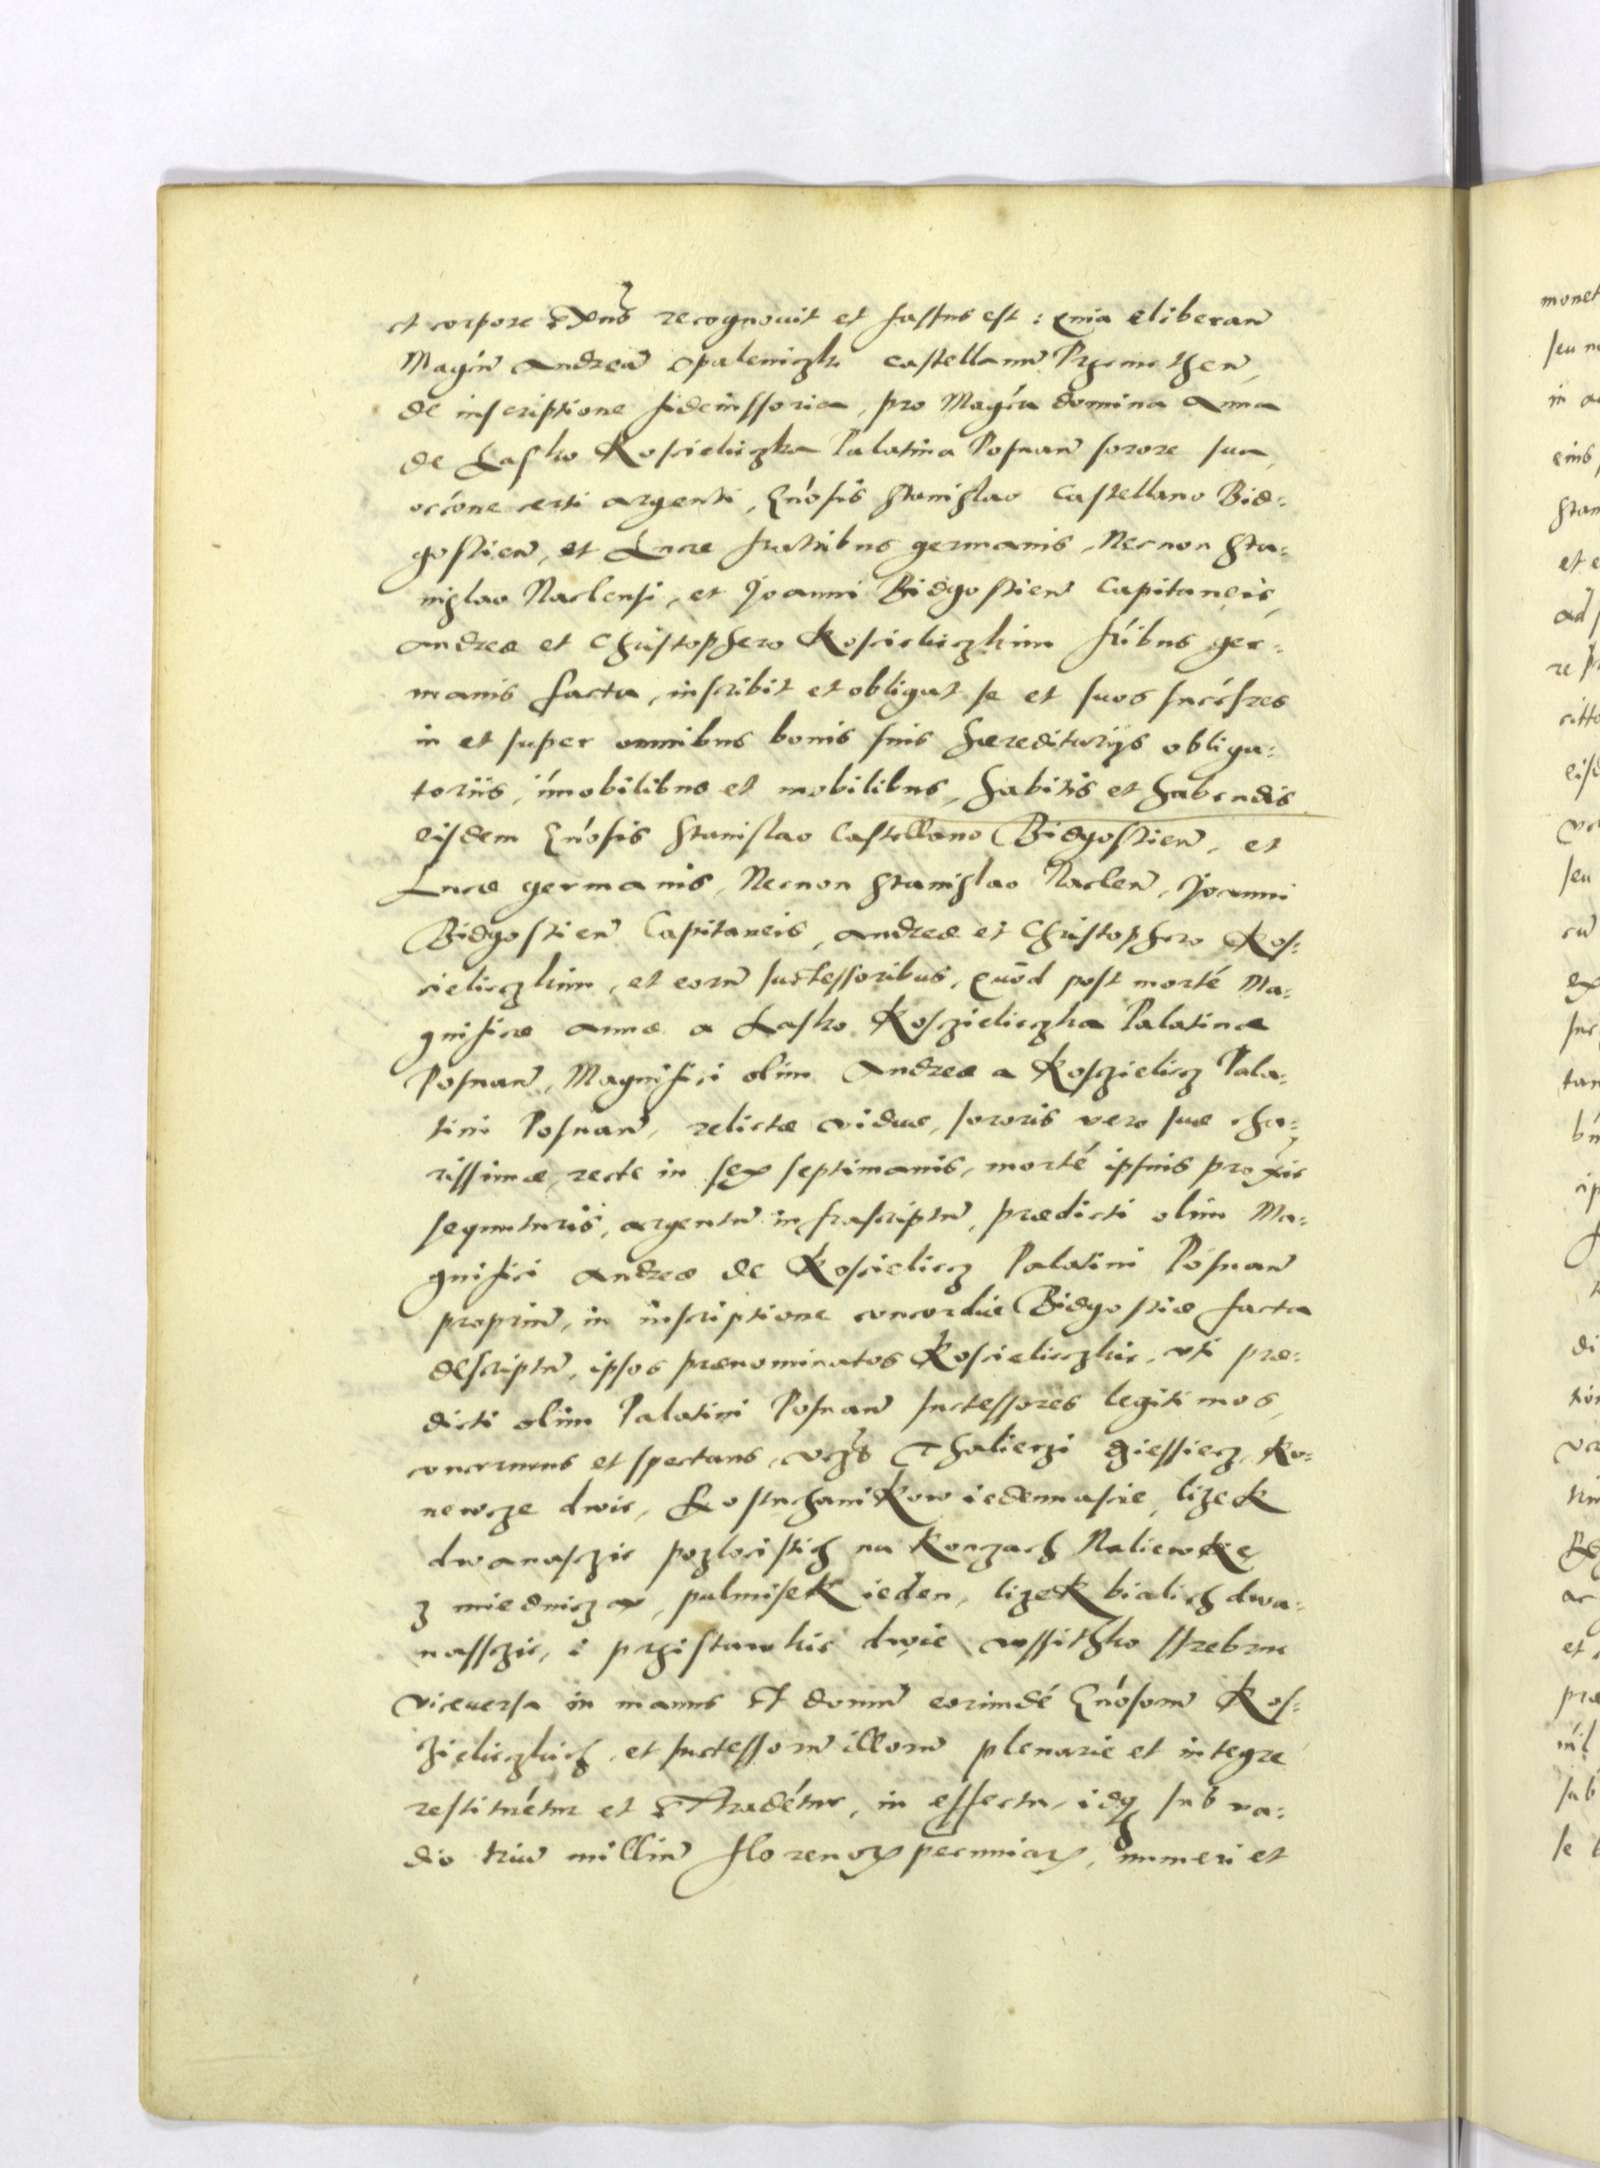 et corpore exns recognovit et fassus est: quia eliberan
Magcu Andrea Opaleniczki castellanu Przemethen,
de inscriptione fideiussoria, pro Magca domina Anna
de Lasko Koscieliczka Palatina Posnan sorore sua,
occone certi argenti, Gnosis Stanislao Castellano Bid:
gostien, et Lucæ fratribus germanis, Necnon Sta:
nislao Naclensi, et Joanni Bidgostien Capitaneis,
Andreæ et Christophero Koscieliczkim fribus ger:
manis facta, inscribit et obligat se et suos succsres
in et super omnibus bonis suis hæreditarijs obliga:
toriis, imobilibus et mobilibus, habitis et habendis
eisdem Gnosis Stanislao Castellano Bidgostien, et
Lucæ germanis, Necnon Stanislao Naclen, Joanni
Bidgostien Capitaneis, Andreæ et Christophero Kos:
cieliczkim, et eoru successoribus, quod post morté Ma:
gnificæ Annæ a Lasko Koszieliczka Palatinæ
Posnan, Magnifici olim Andreæ a Koszielicz Pala:
tini Posnan, relictæ viduæ, sororis vero suæ cha:
rissimæ, recte in sex septimanis, morté ipsius proxie
sequuturis, argentu infrascriptu, prædicti olim Ma:
gnifici Andreæ de Koscielicz Palatini Posnan
propriu, in inscriptione concordiæ Bidgostiæ facta
descriptu, ipsos prænominatos Koscieliczkie, uti præ:
dicti olim Palatini Posnan successores legitimos,
concernens et spectans, vczs Thalierzi dziessiecz, Ko:
newcze dwie, Kostuchanikow iedennascie, lizek
dwanasczie pozlocistich na Konczach Naliewkę
z miedniczą, pulmisek ieden, lizek bialich dwa:
nassczie, i przistawkie dwie wssitzko srebrne
viceversa in manus et domu eorundé Gnosoru Kos:
zieliczkich, et successoru illoru plenarie et integre
restituétur et extradétur, in effectu, idq sub va:
dio triu milliu florenor pecuniar, numeri et